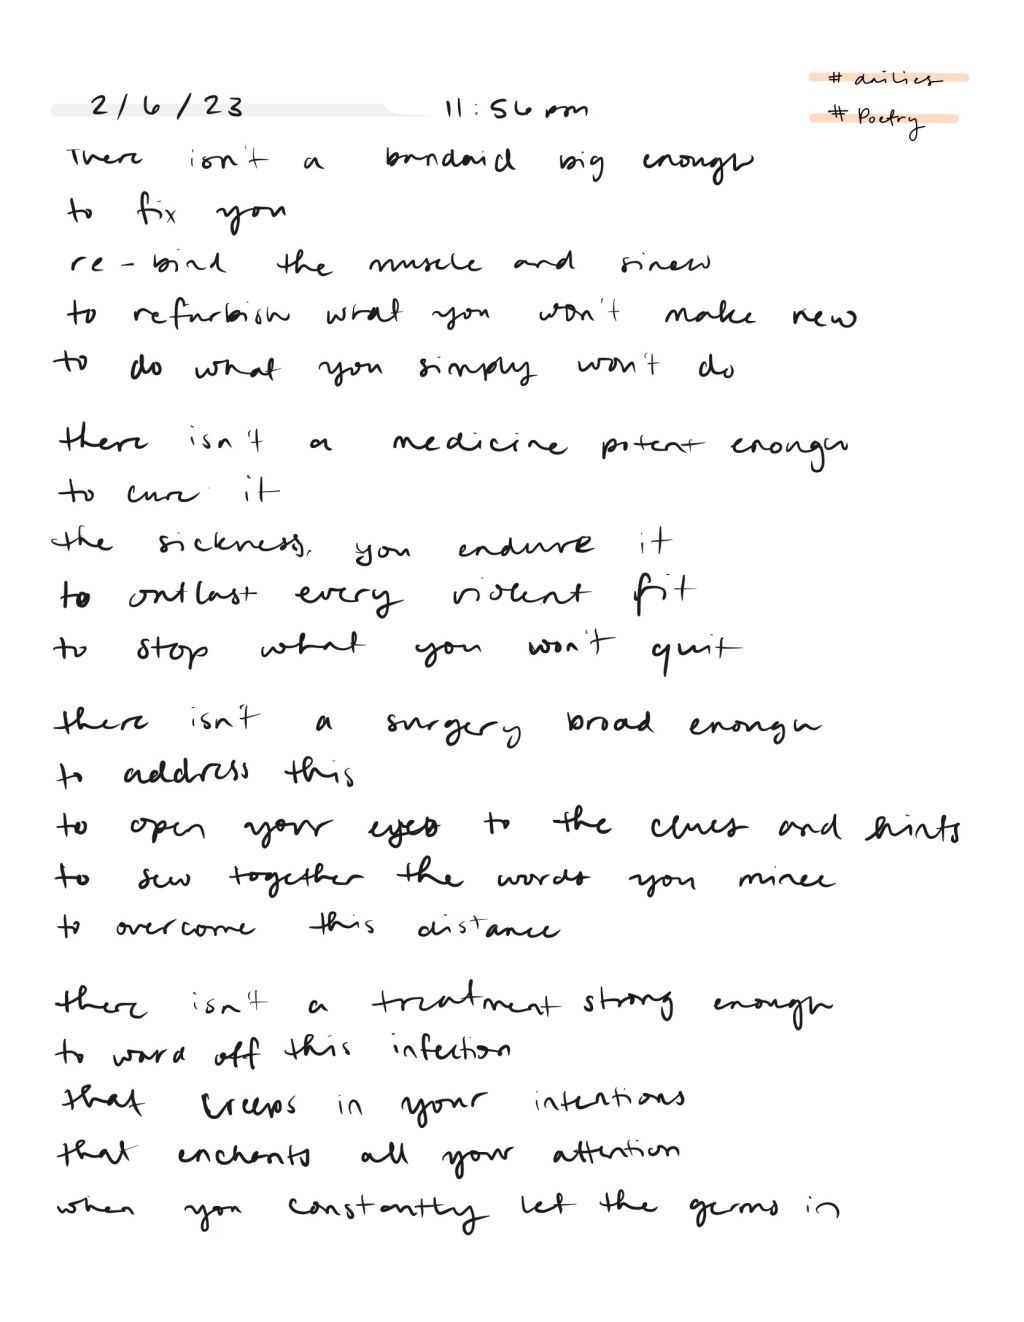 # dailies
2/6/23 11:56 pm
# Poetry
There isn't a bandaid big enough
to fix you
re-bind the muscle and sinew
to refurbish what you won't make new
to do what you simply won't do
there isn't a medicine potent enough
to cure it
the sickness, you endure it
to outlast every violent fit
to stop what you won't quit
there isn't a surgery broad enough
to address this
to open your eyes to the clues and hints
to sew together the words you mince
to overcome this distance
there isn't a treatment strong enough
to ward off this infection
that creeps in your intentions
that enchants all your attention
when you constantly let the germs in